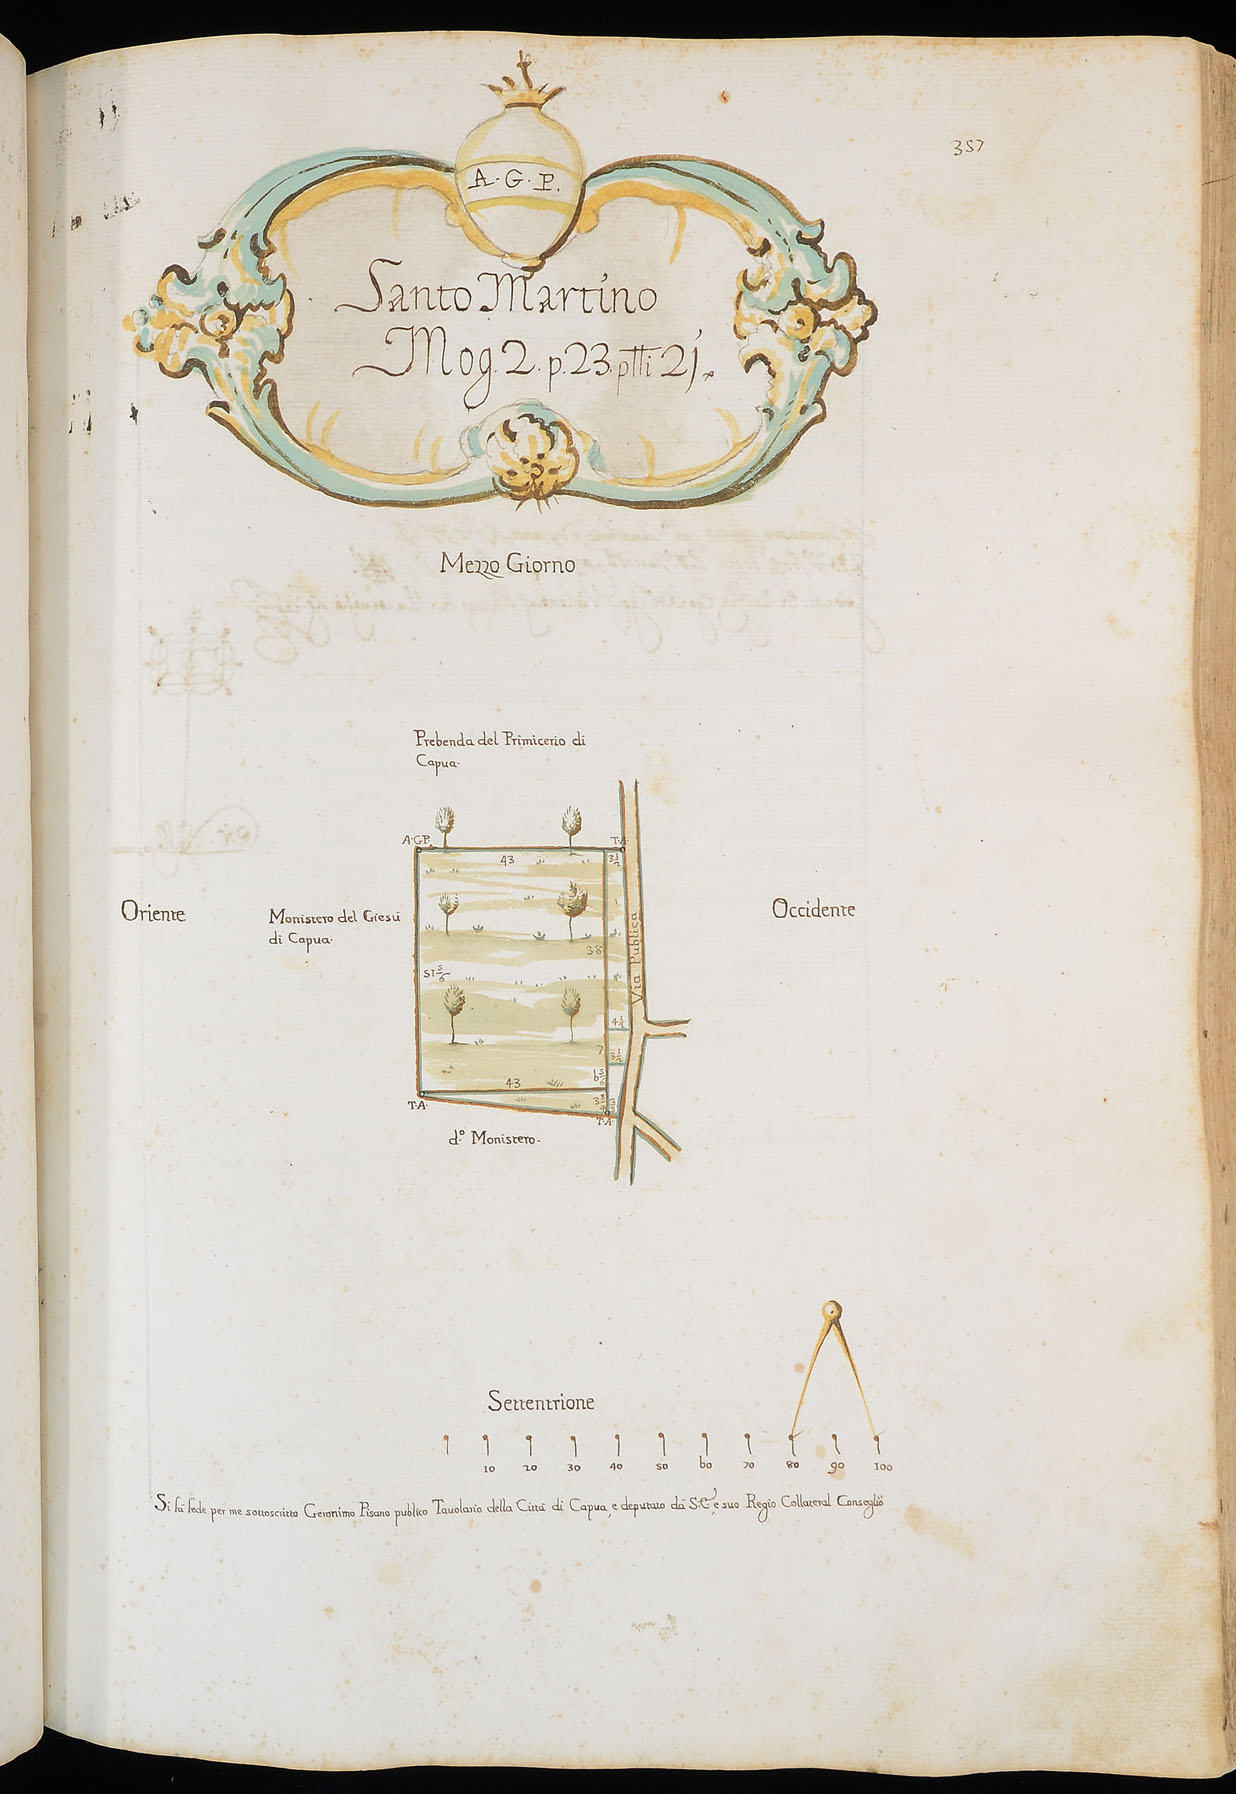 357
A·G·P.
Santo Martino
Mog. 2. p. 23. pttì 21.
Mezzo Giorno
Prebenda del Primicerio di
Capua.
A·G·P.
T·A·
43
3 1/2
Oriente
Monistero del Giesù
di Capua.
Occidente
Via Publica
38
51 5/6
4 1/4
7
3 1/2
6 5/6
43
3
T·A·
T·A·
d.º Monistero.
Settentrione
10 20 30 40 50 60 70 80 90 100
Si fà fede per me sottoscritto Geronimo Pisano publico Tavolario della Città di Capua, e deputato dà S. E. e suo Regio Collateral Conseglio